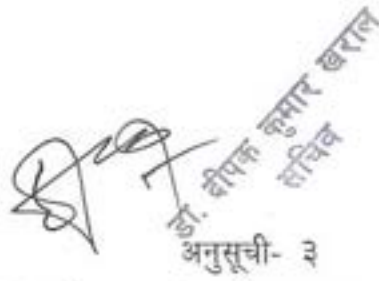 डा. दीपक कुमार खराल
सचिव
अनुसूची- ३